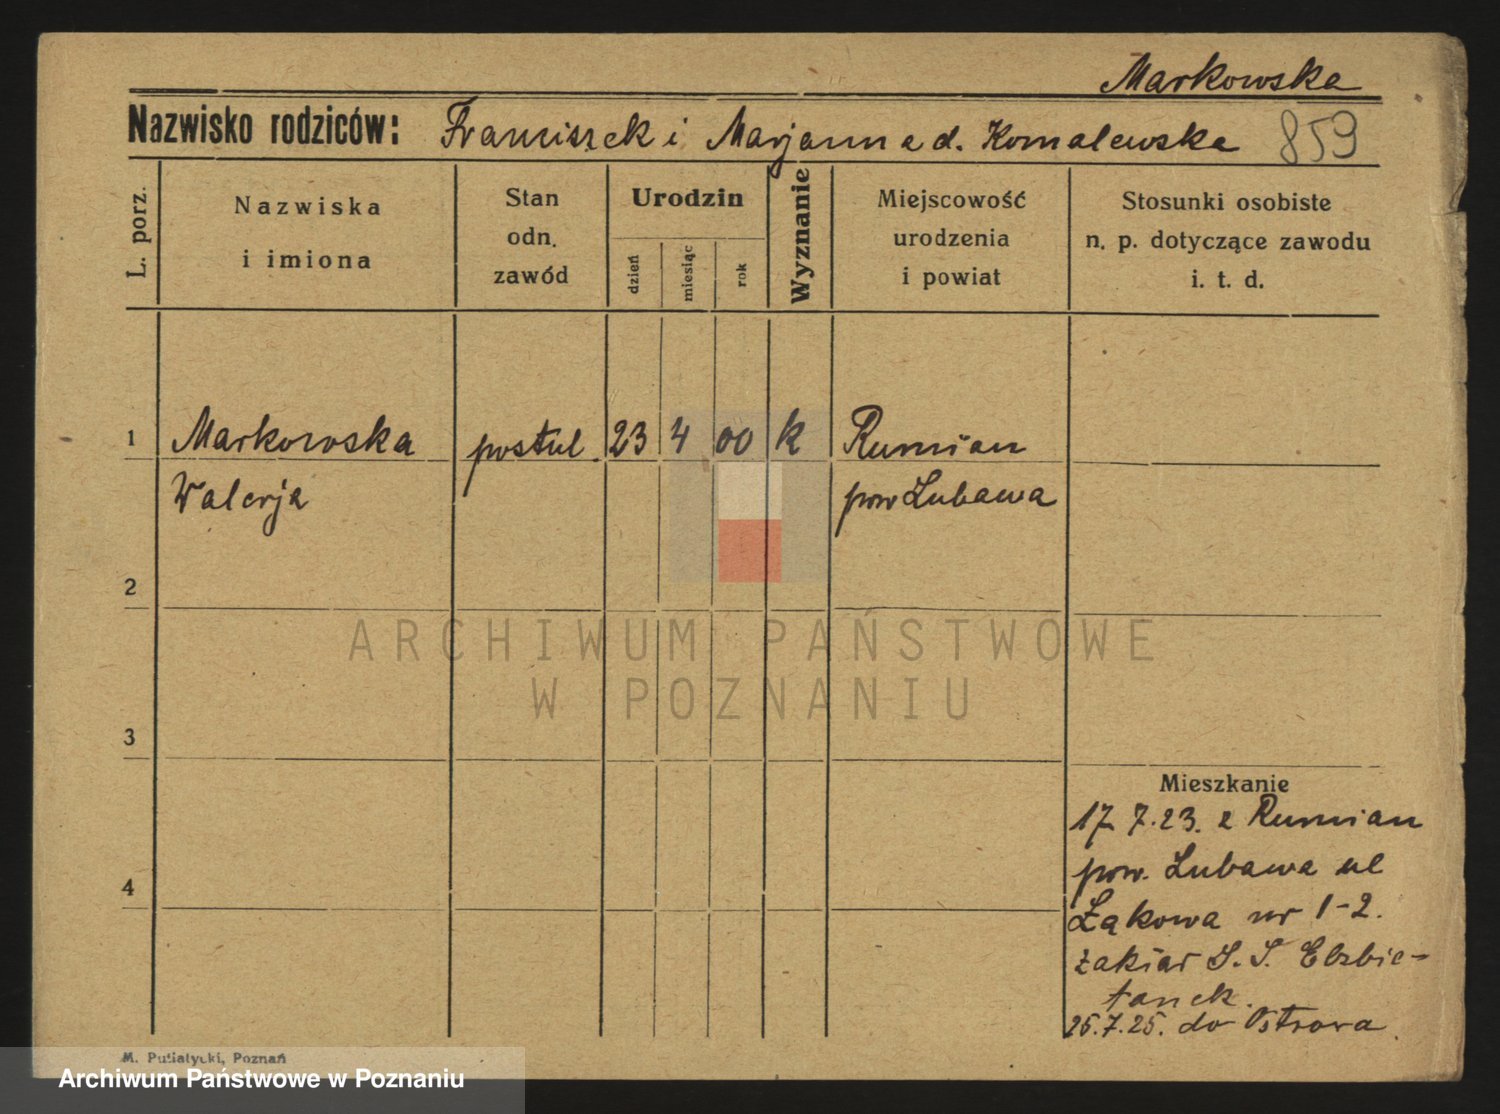 Markowska
Nazwisko rodziców: Franciszek i Marjanna d. Komalewska 859
L. porz.
Nazwiska
i imiona
Stan
odn.
zawód
Urodzin
dzień
miesiąc
rok
Wyznanie
Miejscowość
urodzenia
i powiat
Stosunki osobiste
n. p. dotyczące zawodu
i. t. d.
1 Markowska postul. 23 4 00 k Rumian
Walerja pow Lubawa
2
ARCHIWUM PAŃSTWOWE
W POZNANIU
3
Mieszkanie
17 7.23. z Rumian
pow. Lubawa ul
4
Łąkowa nr 1-2.
S. S. Elzbie-
tanek.
25.7.25. do Ostrowa
M. Putiatycki, Poznań
Archiwum Państwowe w Poznaniu